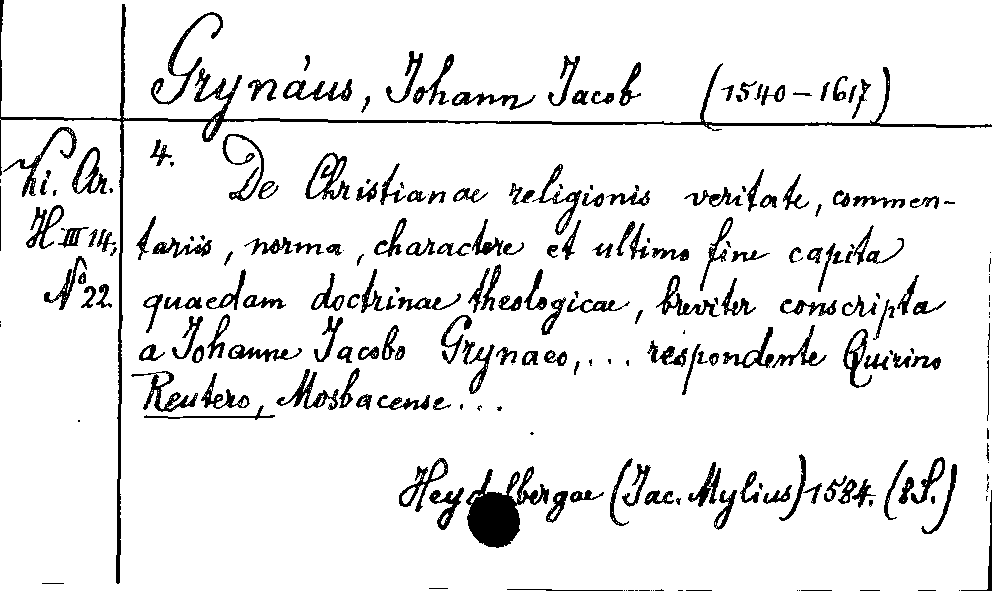 Grynäus, Johann Jacob (1540-1617)
Ki. Ar.
H III 14,
No 22.
4. De Christianae religionis veritate, commen-
tariis, norma, charactere et ultimo fine capita
quaedam doctrinae theologicae, breviter conscripta
a Johanne Jacobo Grynaeo, ... respondente Quirino
Reutero, Mosbacense ...
Heydelbergae (Jac. Mylius) 1584. (8 S.)